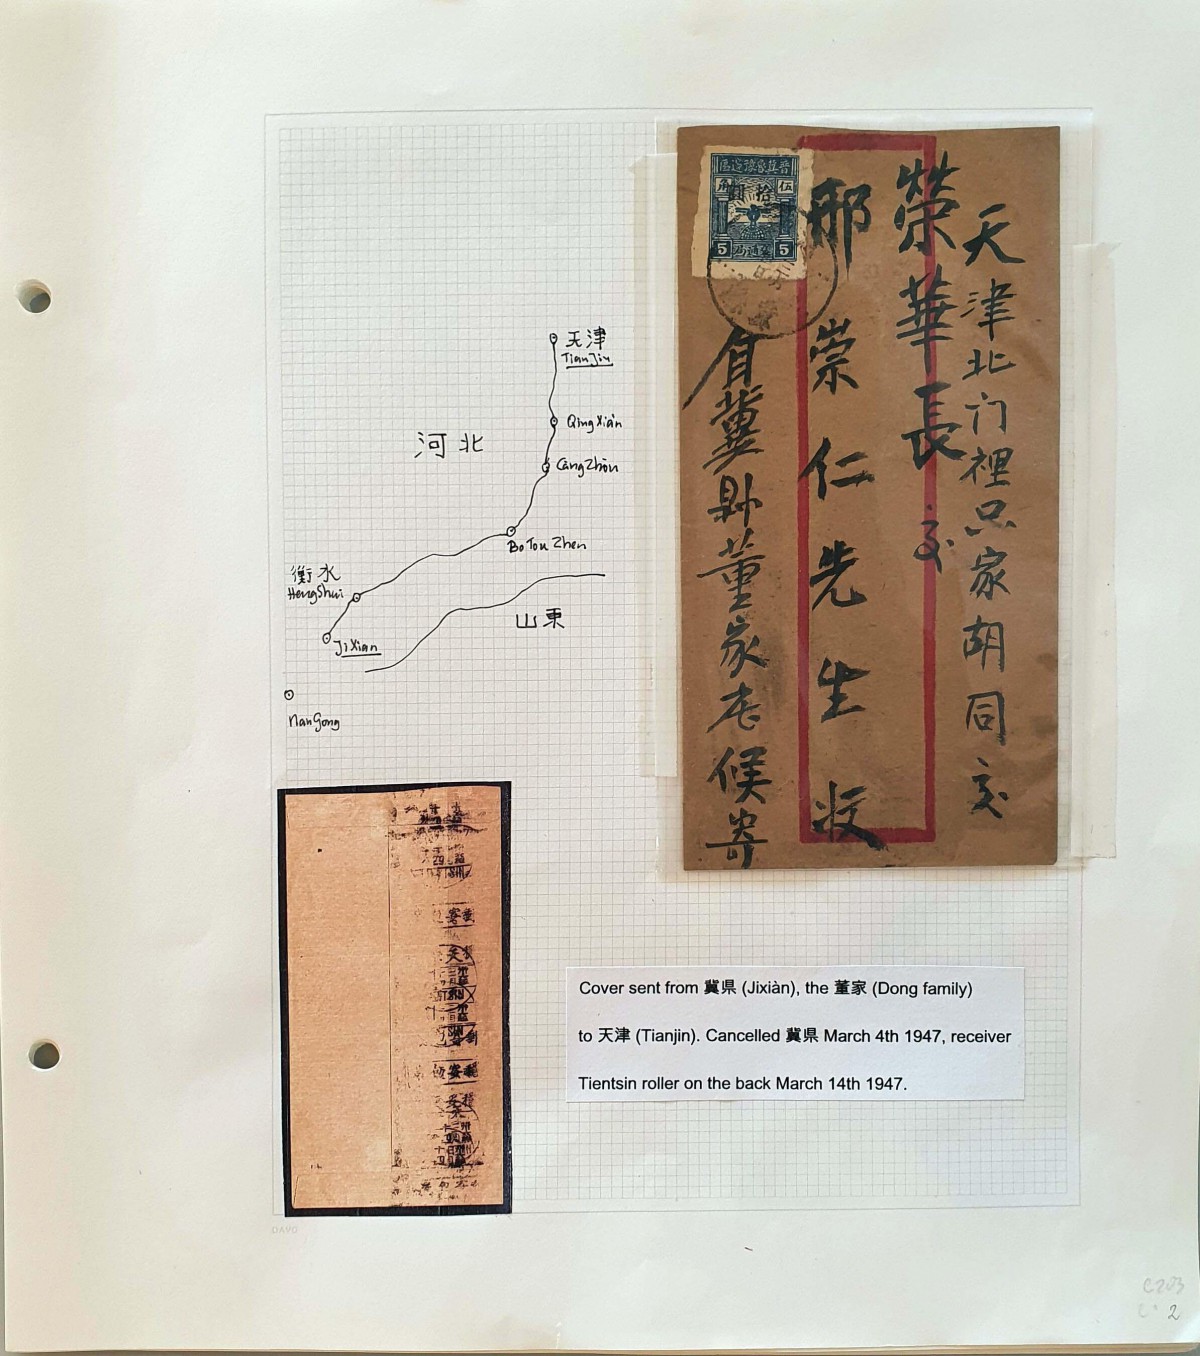 晋冀魯豫邊區
伍
角
拾
圓
5
5
天津北门裡只家胡同交
榮華長交
邢崇仁先生收
自冀縣董家庄候寄
天津
TianJin
QingXian
CangZhou
河北
BoTouZhen
衡水
HengShui
JiXian
山東
NanGong
Cover sent from 冀県 (Jixiàn), the 董家 (Dong family)
to 天津 (Tianjin). Cancelled 冀県 March 4th 1947, receiver
Tientsin roller on the back March 14th 1947.
DAVO
C203
2